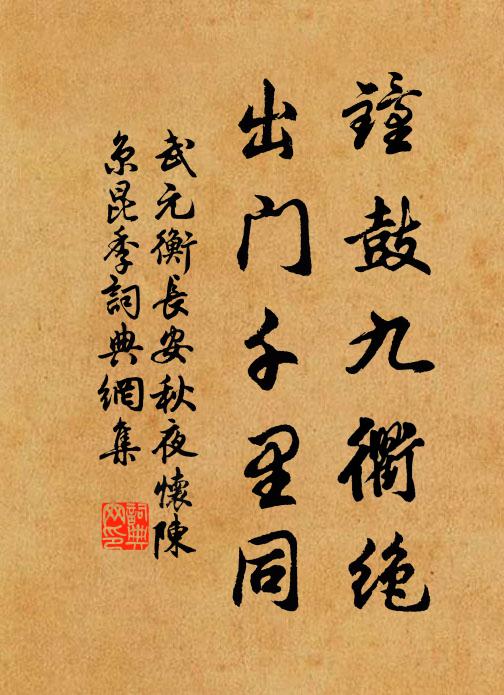 鐘鼓九衢絶
出門千里同
武元衡長安秋夜懷陳
京昆季詞典網集
詞典
网印